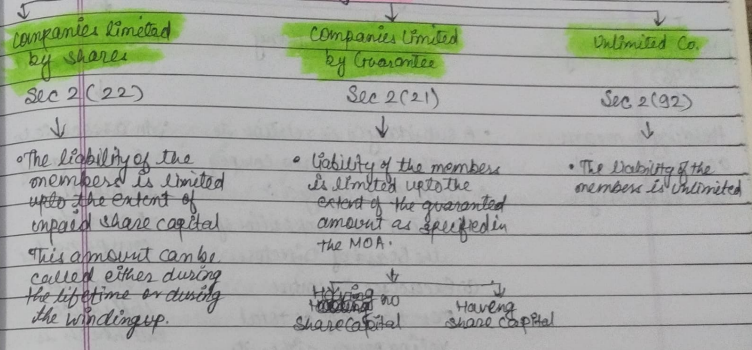 Companies limited
by shares
Sec 2(22)
• The liability of the
members is limited
upto the extent of
unpaid share capital
This amount can be
called either during
the lifetime or during
the winding up.
Companies Limited
by Guarantee
Sec 2(21)
• Liability of the members
is limited upto the
extent of the guaranted
amount as specified in
the MOA.
Having no
share capital
Having
share capital
Unlimited Co.
Sec 2(92)
• The liability of the
members is unlimited